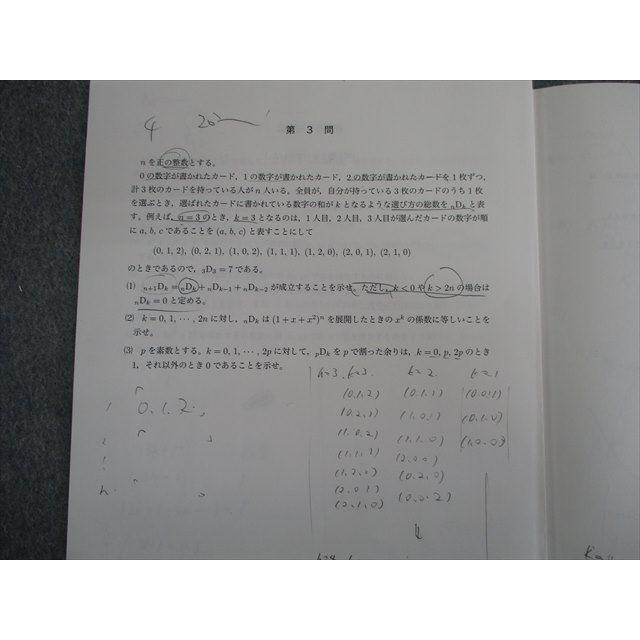 4
第 3 問
n を正の整数とする。
0 の数字が書かれたカード，1 の数字が書かれたカード，2 の数字が書かれたカードを 1 枚ずつ，
計 3 枚のカードを持っている人が n 人いる。全員が，自分が持っている 3 枚のカードのうち 1 枚
を選ぶとき，選ばれたカードに書かれている数字の和が k となるような選び方の総数を nDk と表
す。例えば，n = 3 のとき，k = 3 となるのは，1 人目，2 人目，3 人目が選んだカードの数字が順
に a, b, c であることを (a, b, c) と表すことにして
(0, 1, 2), (0, 2, 1), (1, 0, 2), (1, 1, 1), (1, 2, 0), (2, 0, 1), (2, 1, 0)
のときであるので，3D3 = 7 である。
(1) n+1Dk = nDk + nDk−1 + nDk−2 が成立することを示せ。ただし，k < 0 や k > 2n の場合は
nDk = 0 と定める。
(2) k = 0, 1, ···, 2n に対し，nDk は (1 + x + x²)ⁿ を展開したときの xᵏ の係数に等しいことを
示せ。
(3) p を素数とする。k = 0, 1, ···, 2p に対して，pDk を p で割った余りは，k = 0, p, 2p のとき
1，それ以外のとき 0 であることを示せ。
k=3. k=2. k=1
(0.1.2) (0.1.1) (0.0.1)
(0.2.1) (1.0.1) (0.1.0)
(1.0.2) (1.1.0) (1.0.0)
(1.1.1) (2.0.0)
(1.2.0) (0.2.0)
(2.0.1) (0.0.2)
(2.1.0)
1 「0.1.2」
2 「 」
n.